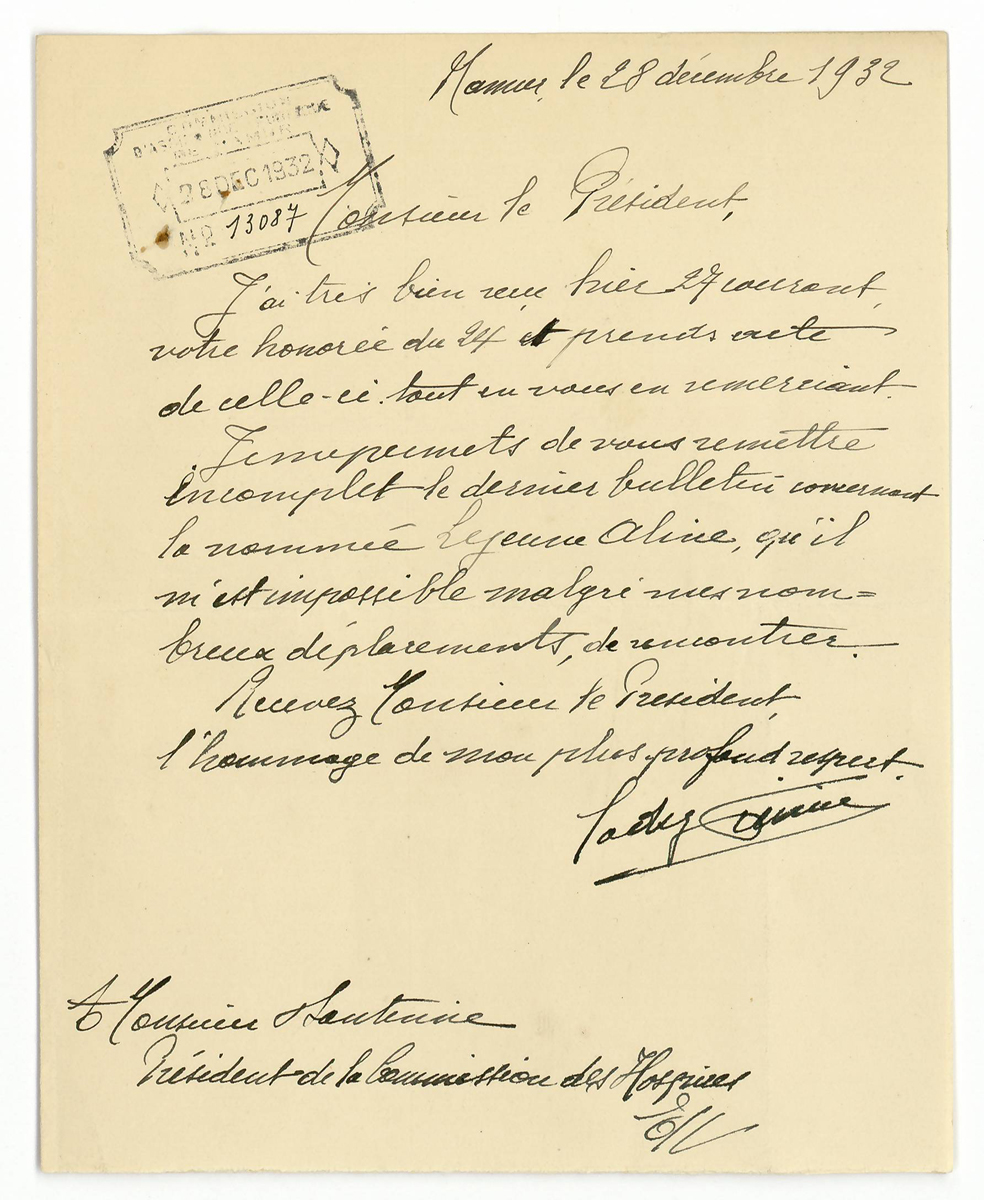 Namur, le 28 décembre 1932
COMMISSION
D'ASSISTANCE PUBLIQUE
DE NAMUR
28 DEC 1932
No 13087
Monsieur le Président,
J'ai très bien reçu hier 27 courant,
votre honorée du 24 et prends acte
de celle-ci. tout en vous en remerciant.
Je me permets de vous remettre
incomplet le dernier bulletin concernant
la nommée Lejeune Aline, qu'il
m'est impossible malgré mes nom=
breux déplacements, de rencontrer.
Recevez Monsieur le Président,
l'hommage de mon plus profond respect.
A Monsieur
Président de la Commission des Hospices
E/V